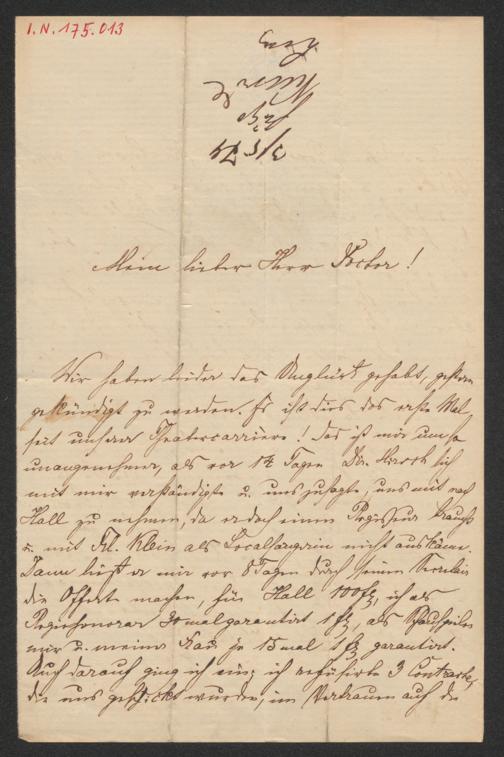 I.N. 175.013
3/5 74
Mein lieber Herr Doctor!
Wir haben leider das Unglück gehabt, gestern
gekündigt zu werden. Es ist dies das erste Mal
seit unserer Theatercarriere! Das ist mir um so
unangenehmer, als vor 14 Tagen Dir. Hirsch sich
mit mir verständigte u. uns zusagte, uns mit nach
Hall zu nehmen, da er doch einen Regisseur braucht
u. mit Frl. Klein als Localsängerin nicht auskäme.
Dann ließ er mir vor 8 Tagen durch seinen Secretair
die Offert machen, für Hall 100 fl, ich als
Regiehonorar 30mal garantirt 1 fl, als Schauspieler
mir u. meiner Frau je 15mal 1 fl garantirt.
Auch darauf ging ich ein; ich refüsirte 3 Contracte,
die uns geschickt wurden, im Vertrauen auf die